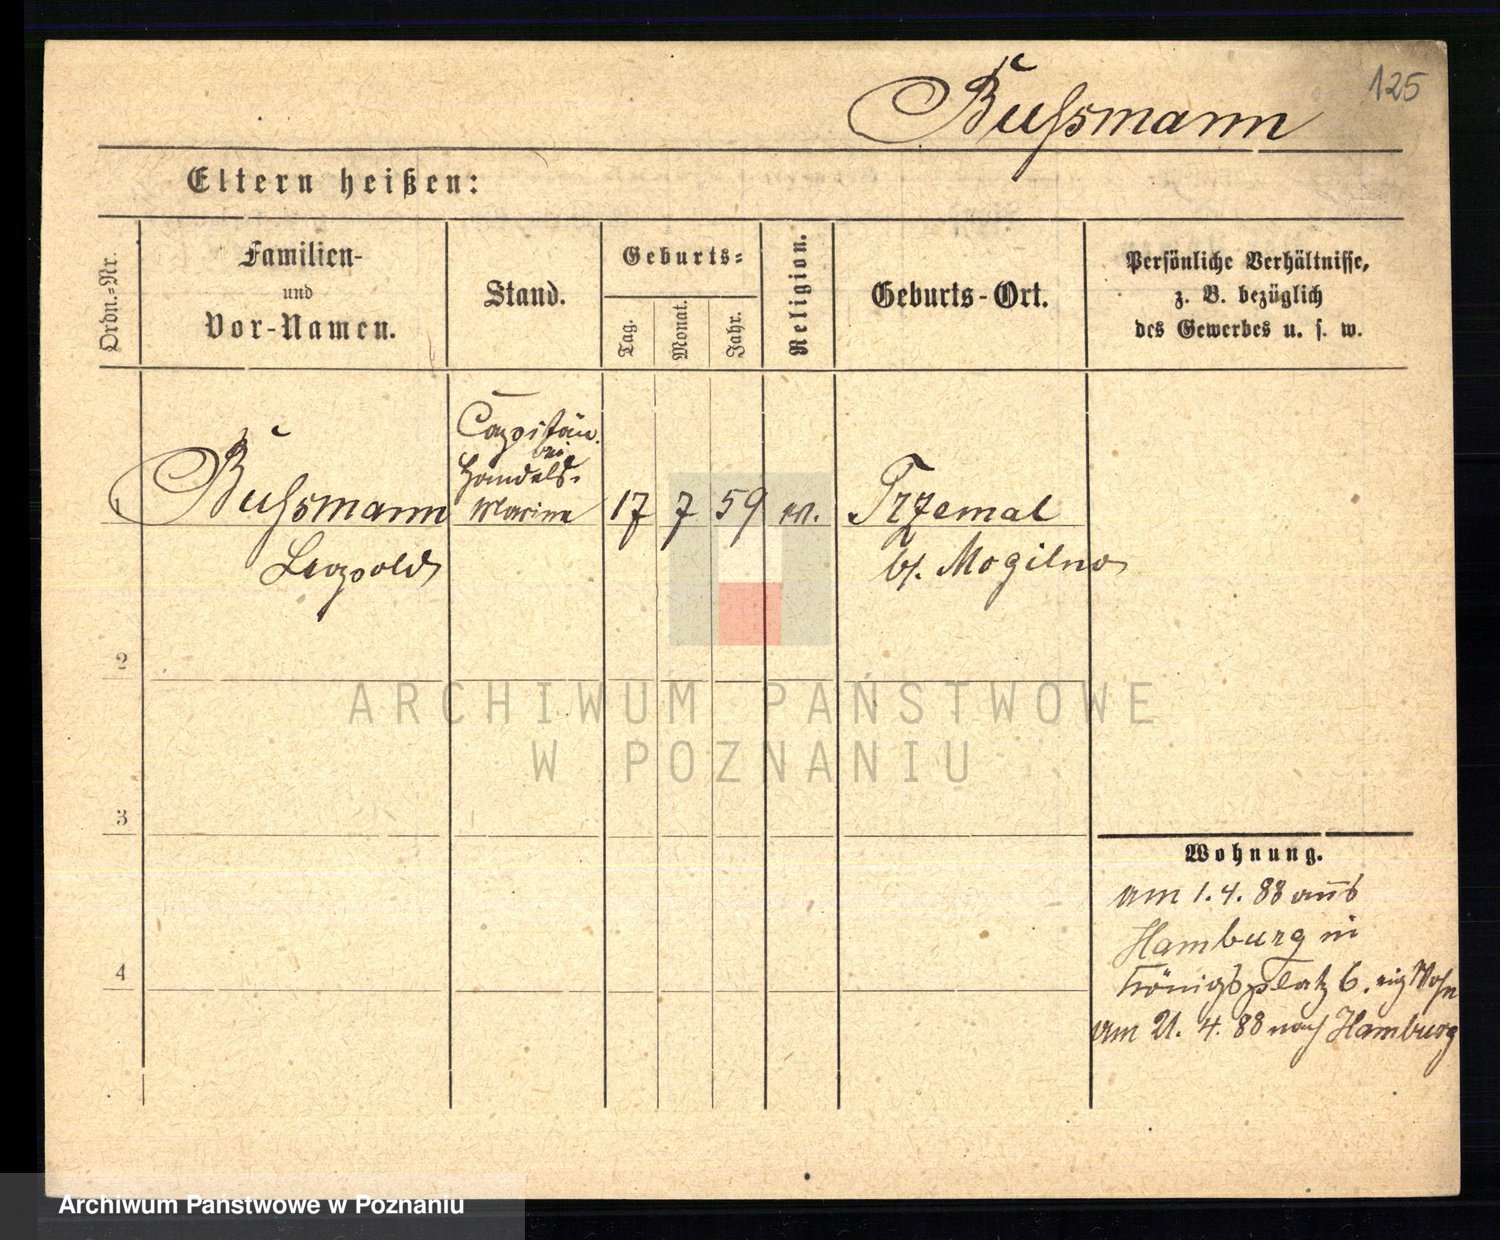 125
Bussmann
Eltern heißen:
Ordn.-Nr.
Familien-
und
Vor-Namen.
Stand.
Geburts-
Tag.
Monat.
Jahr.
Religion.
Geburts-Ort.
Persönliche Verhältnisse,
z. B. bezüglich
des Gewerbes u. s. w.
1
Bussmann
Leopold
Capitän
bei
Handels-
Marine
17
7
59
ev.
Trzemal
b/. Mogilno
2
3
4
Wohnung.
am 1. 4. 88 aus
Hamburg in
Königsplatz 6. eig Wohn
am 21. 4. 88 nach Hamburg
ARCHIWUM PAŃSTWOWE
W POZNANIU
Archiwum Państwowe w Poznaniu